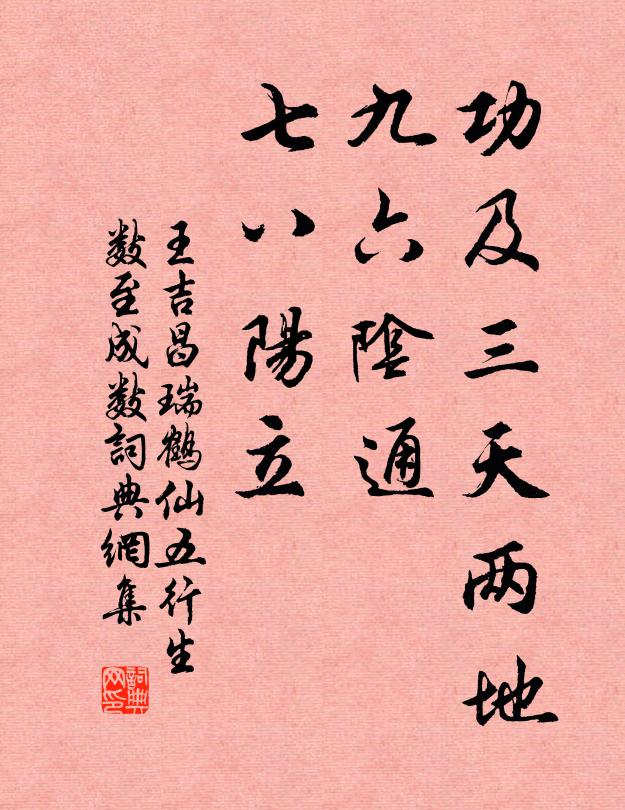 功及三天两地
九六陰通
七八陽立
王吉昌瑞鶴仙五行生
数至成数詞典網集
詞典网印